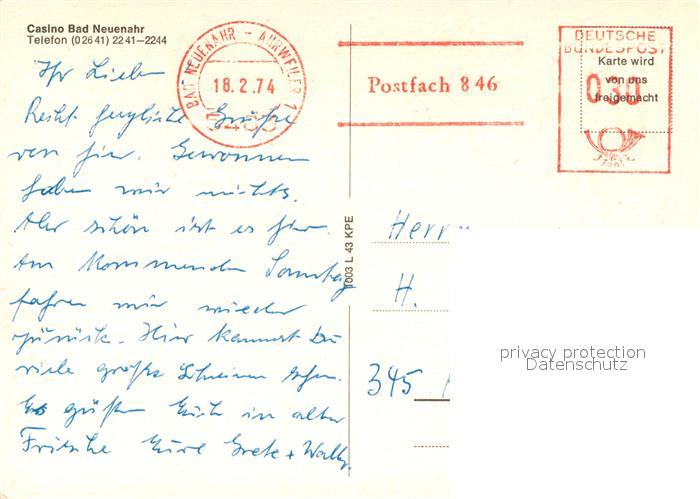 Casino Bad Neuenahr
Telefon (0 26 41) 22 41–2244
BAD NEUENAHR - AHRWEILER 1
18.2.74
5483
Postfach 846
DEUTSCHE
BUNDESPOST
Karte wird
von uns
freigemacht
030
Ihr Lieben
Recht herzliche Grüße
von hier. Gewonnen
haben wir nichts.
Aber schön ist es hier.
Am kommenden Samstag
fahren wir wieder
zurück. Hier kannst Du
viele große Scheine sehen.
Es grüßen Euch in alter
Frische Eure Grete + Wally.
1003 L 43 KPE
Herrn
H.
345
privacy protection
Datenschutz